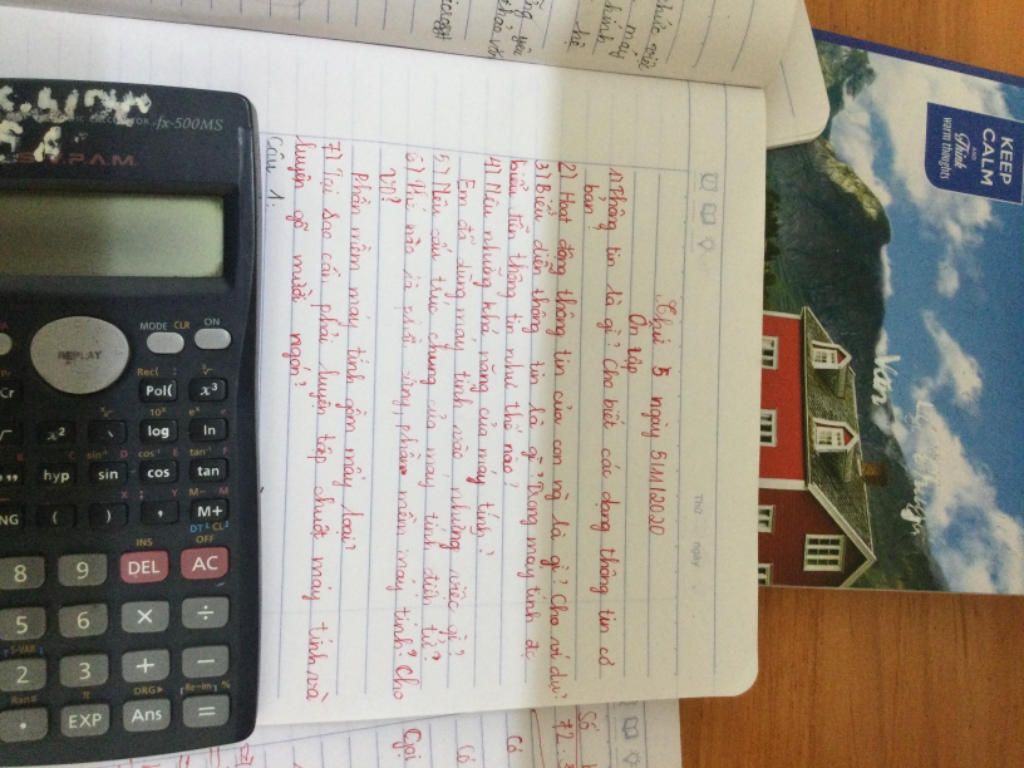 Thứ 5 ngày 5/11/2020
Ôn tập
1) Thông tin là gì? Cho biết các dạng thông tin cơ
bản?
2) Hoạt động thông tin của con ng là gì? Cho ví dụ?
3) Biểu diễn thông tin là gì? Trong máy tính đc
biểu diễn thông tin như thế nào?
4) Nêu những khả năng của máy tính?
Em đã dùng máy tính vào những việc gì?
5) Nêu cấu trúc chung của máy tính điện tử?
6) Thế nào là phần cứng, phần mềm máy tính? Cho
VD?
phần mềm máy tính gồm mấy loại?
7) Tại sao cần phải luyện tập chuột máy tính và
luyện gõ mười ngón?
Câu 1:
Thứ ngày
KEEP
CALM
AND
Think
warm thoughts
Văn
chức việc
máy
hính
fx-500MS
S.V.P.A.M.
REPLAY
MODE CLR ON
Pol( x³
x² log ln
hyp sin cos tan
( ) , M+
DT CL
INS OFF
8 9 DEL AC
5 6 × ÷
2 3 + −
. EXP Ans =
Ran# π DRG▸ Re-Im %
Số
72
Có
Có
Gọi